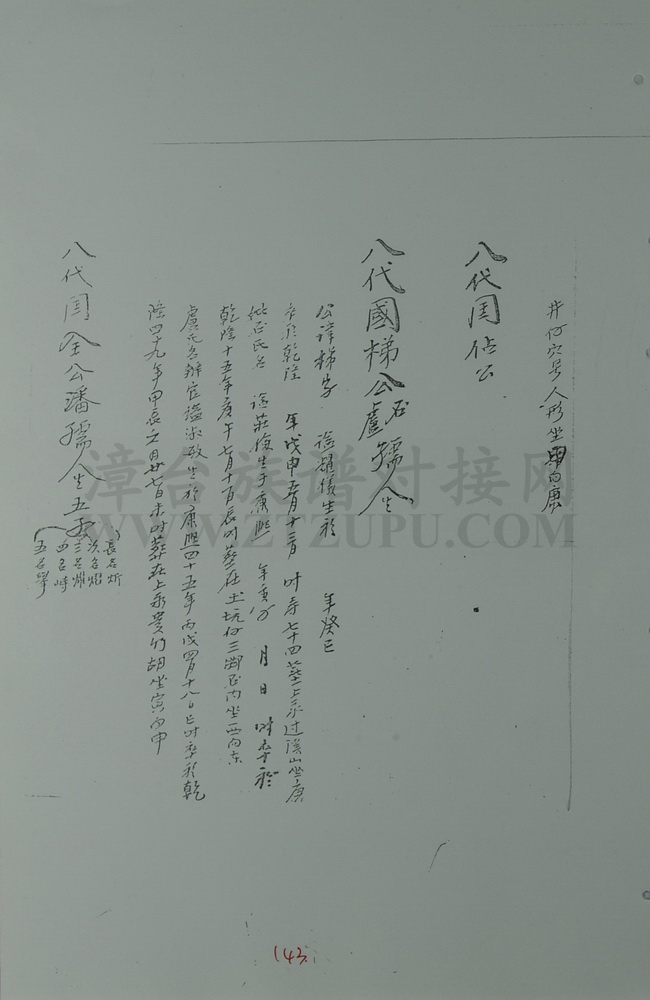 井仔穴号人形坐甲向庚
八代国佔公
八代國梯公石盧孺人生
公諱梯字 謚雄儀生於 年癸巳
卒於乾隆 年戊申五月十三日 时寿七十四墓上永过溪山坐庚
妣石氏名 謚莊俭生于康熙 年庚子 月 日 时卒於
乾隆十五年庚午七月十百辰时墓在土坑仔三腳石内坐西向东
盧氏名辦官謚淑致生於康熙四十五年丙戌四月十八日巳时卒於乾
隆四十九年甲辰六月廿七日未时葬在上永姜竹胡坐寅向申
八代国全公潘孺人生五子
長名炘
次名炤
三名
四名峙
五名举
漳台族谱对接网
WWW.ZTZUPU.COM
143